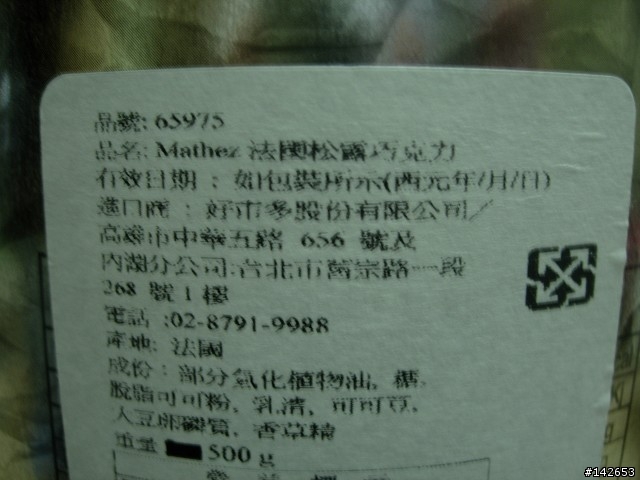 品號: 65975
品名: Mathez 法國松露巧克力
有效日期 : 如包裝所示(西元年/月/日)
進口商 : 好市多股份有限公司/
高雄市中華五路 656 號及
內湖分公司:台北市舊宗路一段
268 號 1 樓
電話 :02-8791-9988
產地: 法國
成份 : 部分氫化植物油, 糖,
脫脂可可粉, 乳清, 可可豆,
大豆卵磷質, 香草精
重量 500 g
#142653